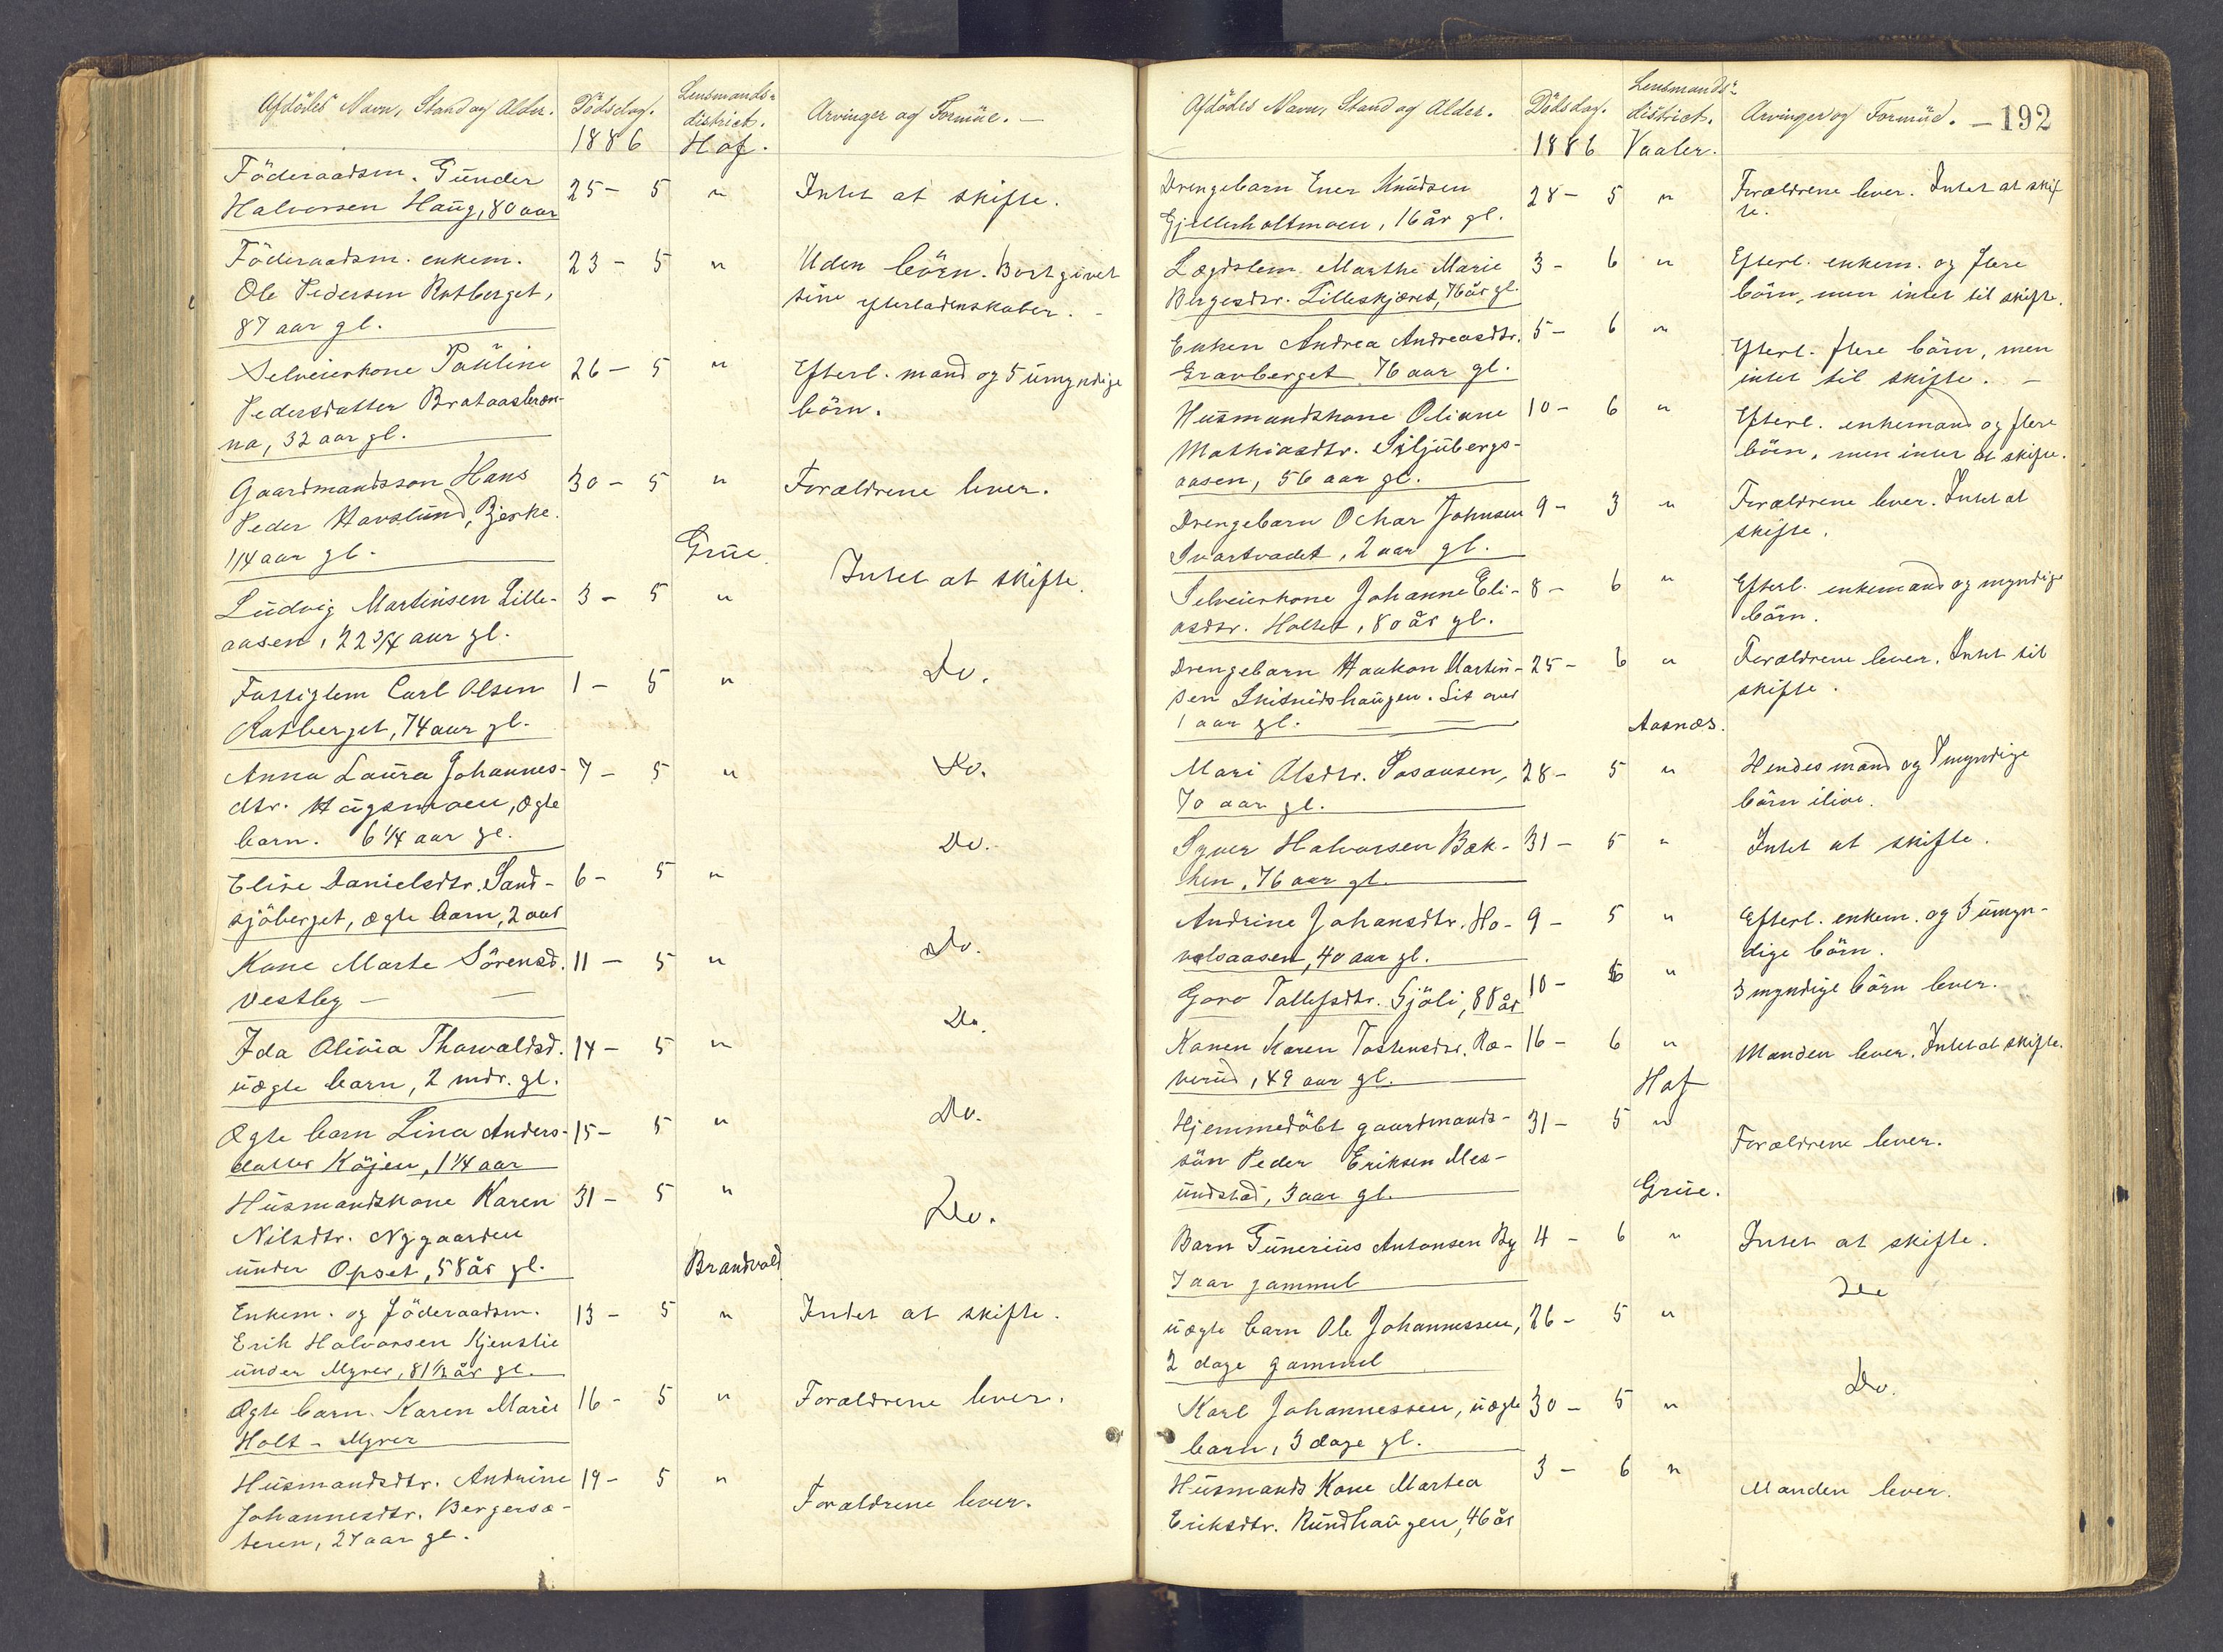 Afdödes Navn, Stand og Alder. Dödsdag. Lensmands- district. Arvinger og Formue. —
1886 Hof.
Föderaadsm. Gunder 25 – 5 " Intet at skifte.
Halvorsen Haug, 80 aar
Föderaadsm. enkem. 23 – 5 " Uden börn. Bortgivet
Ole Pedersen Rotberget, sine efterladenskaber. –
87 aar gl.
Selveierkone Pauline 26 – 5 " Efterl. mand og 5 umyndige
Pedersdatter Brataasbræn- börn.
na, 32 aar gl.
Gaardmandsson Hans 30 – 5 " Forældrene lever.
Peder Havslund, Bjerke.
1/4 aar gl.
Grue.
Ludvig Martinsen Lille- 3 – 5 " Intet at skifte.
aasen, 22 3/4 aar gl.
Fattiglem Carl Olsen 1 – 5 " Do.
Rotberget, 74 aar gl.
Anna Laura Johannes- 7 – 5 " Do.
dtr. Hugsmoen, ægte
barn. 6 1/4 aar gl.
Elise Danielsdtr. Sand- 6 – 5 " Do.
sjöberget, ægte barn, 2 aar
Kone Marte Sörensd. 11 – 5 " Do.
Vestby —
Ida Olivia Thorvaldsd. 14 – 5 " Do.
uægte barn, 2 mdr. gl.
Ægte barn Lina Anders- 15 – 5 " Do.
datter Köjen, 1 1/4 aar
Husmandskone Karen 31 – 5 " Do.
Nilsdtr. Nygaarden
under Opset, 58 år gl.
Brandvold
Enkem. og föderaadsm. 13 – 5 " Intet at skifte.
Erik Halvorsen Kjenslie
under Myrer, 81 1/2 år gl.
Ægte barn. Karen Marie 16 – 5 " Forældrene lever.
Holt – Myrer
Husmandsdtr. Andrine 19 – 5 " Forældrene lever.
Johannesdtr. Bergersæ-
teren, 27 aar gl.
Afdödes Navn, Stand og Alder. Dödsdag. Lensmands- district. Arvinger og Formue. — 192
1886 Vaaler.
Drengebarn Ener Knudsen 28 – 5 " Forældrene lever. Intet at skif
Gjellerholtmoen, 16 år gl. te.
Lægdslem Marthe Marie 3 – 6 " Efterl. enkem. og flere
Bergesdtr. Lilleskjæret, 76 år gl. börn, men intet til skifte.
Enken Andrea Andreasdtr. 5 – 6 " Efterl. flere börn, men
Gravberget 76 aar gl. intet til skifte. –
Husmandskone Oliane 10 – 6 " Efterl. enkemand og flere
Mathiasdtr. Siljubergs- börn, men intet at skifte.
aasen, 56 aar gl.
Drengebarn Ochar Johnsen 9 – 3 " Forældrene lever. Intet at
Svartvadet, 2 aar gl. skifte.
Selveierkone Johanne Eli- 8 – 6 " Efterl. enkemand og myndige
asdtr. Holtet, 80 år gl. börn.
Drengebarn Haakon Martin- 25 – 6 " Forældrene lever. Intet til
sen Skitnidshaugen. Lit over skifte.
1 aar gl.
Aasnæs.
Mari Olsdtr. Sosausen, 28 – 5 " Hendes mand og 7 myndige
70 aar gl. börn ilive.
Syver Halvorsen Bæk- 31 – 5 " Intet at skifte.
ken, 76 aar gl.
Andrine Johansdtr. Ho- 9 – 5 " Efterl. enkem. og 3 umyn-
velsaasen, 40 aar gl. dige börn.
Goro Tollefsdtr. Gjöli, 88 år 10 – 6 " 3 myndige börn lever.
Konen Karen Tostensdtr. Ræ- 16 – 6 " Manden lever. Intet at skifte.
verud, 49 aar gl.
Hof
Hjemmedöbt gaardmands- 31 – 5 " Forældrene lever.
sön Peder Eriksen Mes-
undstad, 3 aar gl.
Grue.
Barn Gunerius Antonsen By 4 – 6 " Intet at skifte.
7 aar gammel
uægte barn Ole Johannessen, 26 – 5 " Do
2 dage gammel
Karl Johannessen, uægte 30 – 5 " Do.
barn, 3 dage gl.
Husmands Kone Martea 3 – 6 " Manden lever.
Eriksdtr. Rundhaugen, 46 år